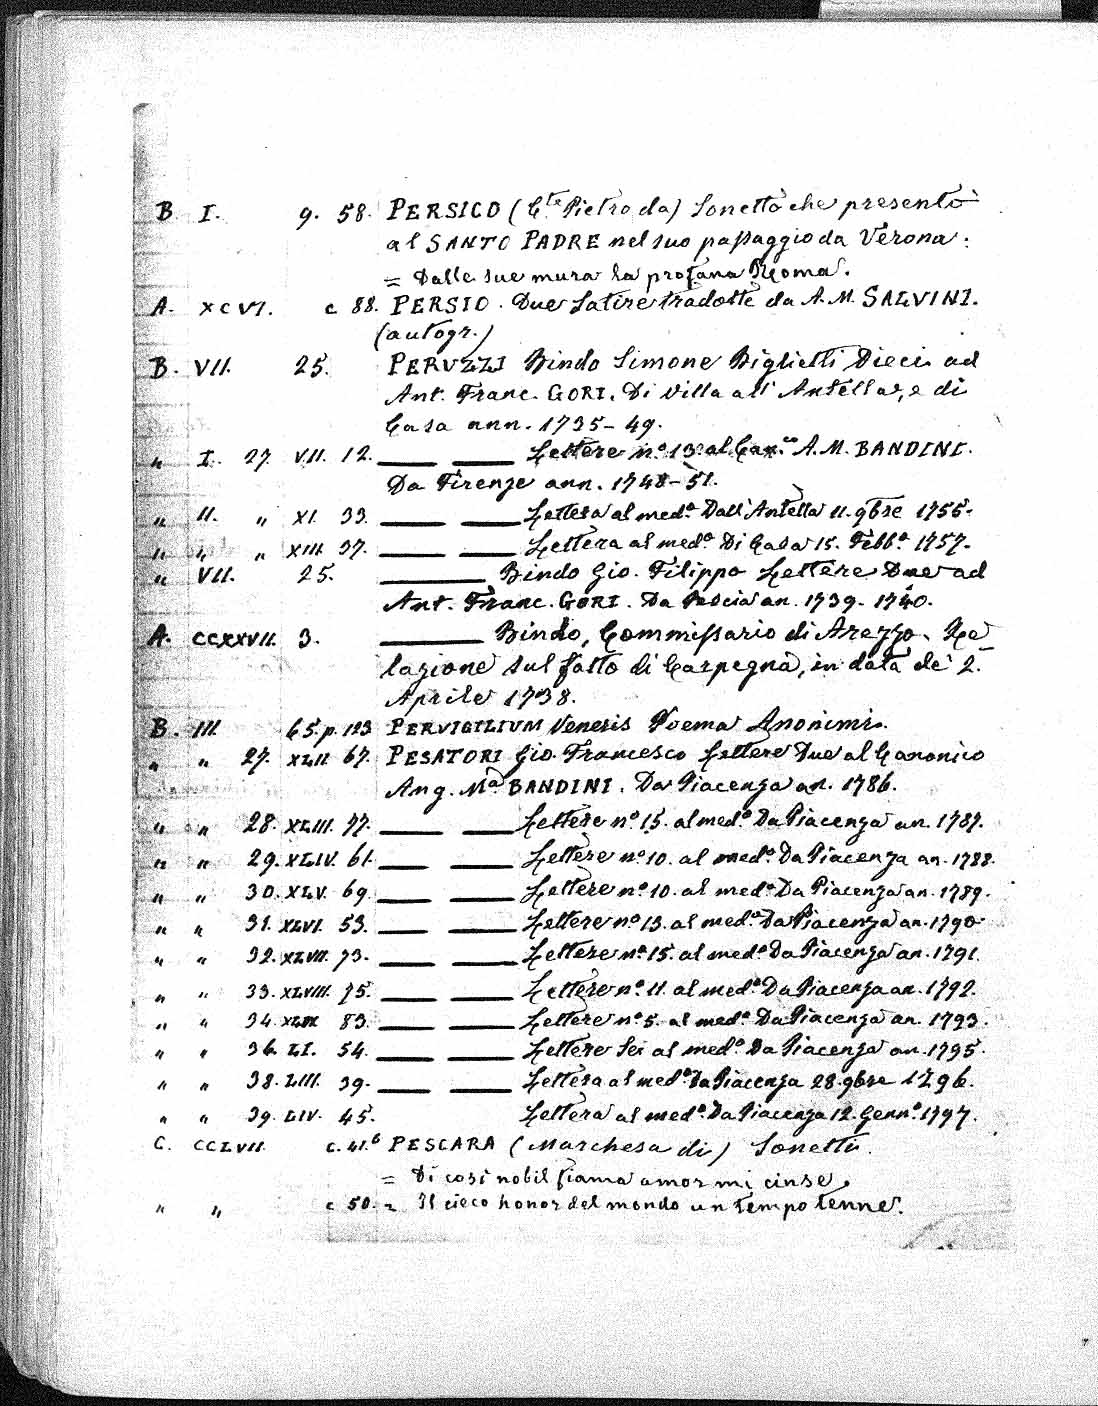 B I. 9. 58. PERSICO (Cte. Pietro da) Sonetto che presentò
al SANTO PADRE nel suo passaggio da Verona:
= Dalle sue mura la profana Roma.
A. XCVI. c 88. PERSIO. Due Satire tradotte da A.M. SALVINI.
(autogr.)
B. VII. 25. PERUZZI Bindo Simone Biglietti Dieci ad
Ant. Franc. GORI. Di Villa all' Antella, e di
Casa ann. 1735-49.
" I. 27. VII. 12. ___ ___ Lettere nº 13. al Can.co A.M. BANDINI.
Da Firenze ann. 1748-51.
" II. " XI. 33. ___ ___ Lettera al med.º Dall'Antella 11. 9bre 1755.
" " " XIII. 37. ___ ___ Lettera al med.º Di Casa 15. Febb.º 1757.
" VII. 25. ___ Bindo Gio. Filippo Lettere Due ad
Ant. Franc. GORI. Da Pescia an. 1739. 1740.
A. CCXXVII. 3. ___ Bindo, Commissario di Arezzo. Re
lazione sul fatto di Carpegna, in data de' 2.
Aprile 1738.
B. III. 65. p. 123 PERVIGILIUM Veneris Poema Anonimi.
" " 27. XLII. 67. PESATORI Gio. Francesco Lettere Due al Canonico
Ang. Mª BANDINI. Da Piacenza an. 1786.
" " 28. XLIII. 77. ___ ___ Lettere nº 15. al med.º Da Piacenza an. 1787.
" " 29. XLIV. 61. ___ ___ Lettere nº 10. al med.º Da Piacenza an. 1788.
" " 30. XLV. 69. ___ ___ Lettere nº 10. al med.º Da Piacenza an. 1789.
" " 31. XLVI. 53. ___ ___ Lettere nº 13. al med.º Da Piacenza an. 1790.
" " 32. XLVII. 73. ___ ___ Lettere nº 15. al med.º Da Piacenza an. 1791.
" " 33. XLVIII. 75. ___ ___ Lettere nº 11. al med.º Da Piacenza an. 1792.
" " 34. XLIX 83. ___ ___ Lettere nº 5. al med.º Da Piacenza an. 1793.
" " 36. LI. 54. ___ ___ Lettere Sei al med.º Da Piacenza an. 1795.
" " 38. LIII. 39. ___ ___ Lettera al med.º Da Piacenza 28. 9bre 1796.
" " 39. LIV. 45. Lettera al med.º Da Piacenza 12. Genn.º 1797.
C. CCLVII. c. 41.b PESCARA (Marchesa di) Sonetti.
= Di così nobil fiama amor mi cinse.
" " c 50. = Il cieco honor del mondo un tempo tenne.